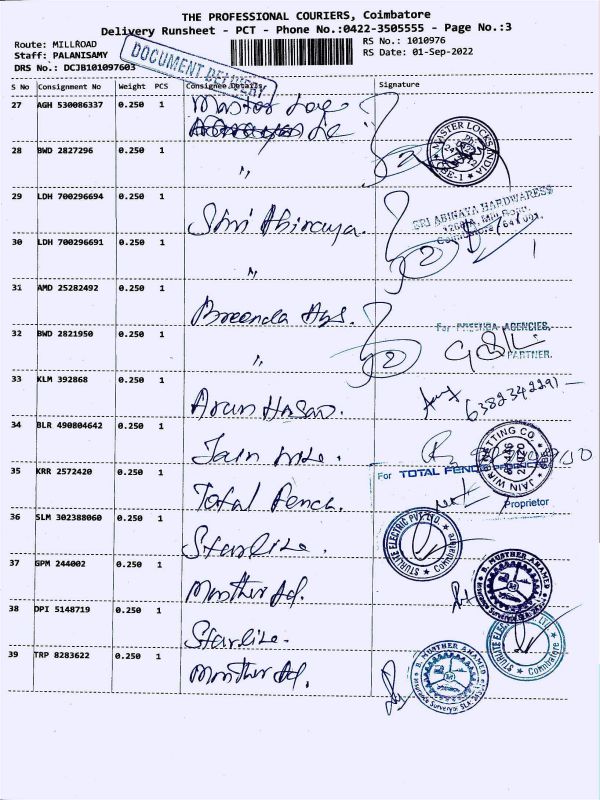 THE PROFESSIONAL COURIERS, Coimbatore
Delivery Runsheet - PCT - Phone No.:0422-3505555 - Page No.:3
Route: MILLROAD
Staff: PALANISAMY
DRS No.: DCJB101097603
RS No.: 1010976
RS Date: 01-Sep-2022
DOCUMENT DELIVERY
S No Consignment No Weight PCS Consignee Details Signature
27 AGH 530086337 0.250 1 Master Loc
MASTER LOCKS INDIA
CBE-1
28 BWD 2827296 0.250 1 〃 2
29 LDH 700296694 0.250 1 Shri Abinaya.
SRI ABINAYA HARDWARESS
Mill Road,
Coimbatore - 641 001.
30 LDH 700296691 0.250 1 〃 2
31 AMD 25282492 0.250 1 Preenda Ags.
For PREENDA AGENCIES,
PARTNER.
32 BWD 2821950 0.250 1 〃 2
33 KLM 392868 0.250 1 Arun Hasan.
6382342291
34 BLR 490804642 0.250 1 Jain wire.
JAIN WIRE NETTING CO.
35 KRR 2572420 0.250 1 Total Fence.
For TOTAL FENCE PRODUCTS
Proprietor
36 SLM 302388060 0.250 1 Starlite.
STURLITE ELECTRIC PVT LTD.
Coimbatore
37 GPM 244002 0.250 1 Monther Ad.
B. MUSTHER AHAMED
38 DPI 5148719 0.250 1 Starlite.
STURLITE ELEC
Coimbatore
39 TRP 8283622 0.250 1 Monther Ad.
B. MUSTHER AHAMED
Surveyor